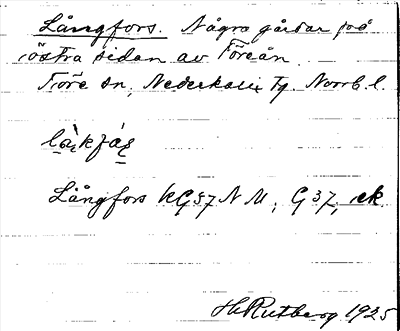 Långfors. Några gårdar på
östra sidan av Töreån.
Töre sn, Nederkalix tg. Norrb. l.
Långfors KG 57 N M, G 37, ek.
H Rutberg 1925